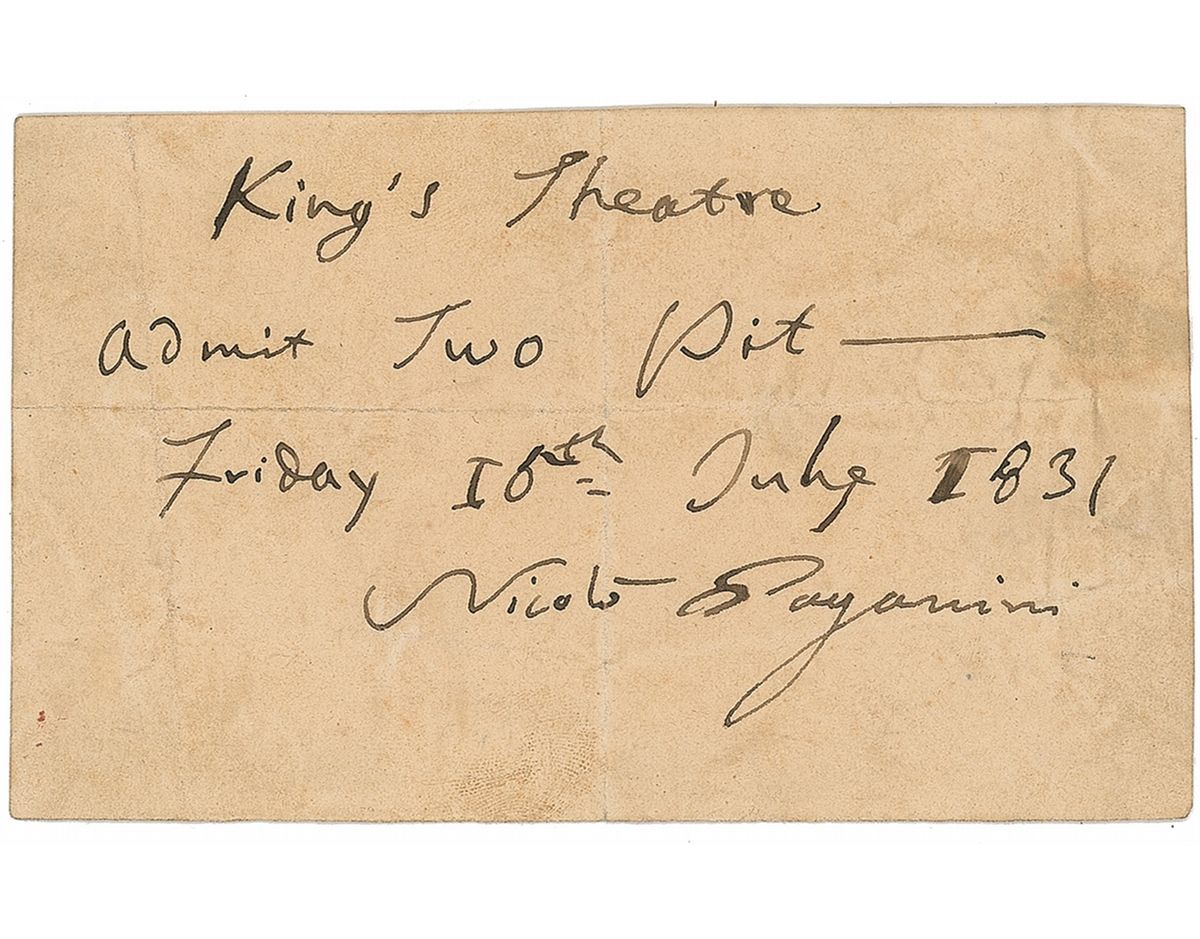 King's Theatre
admit Two Pit —
Friday 15th July 1831
Nicolò Paganini